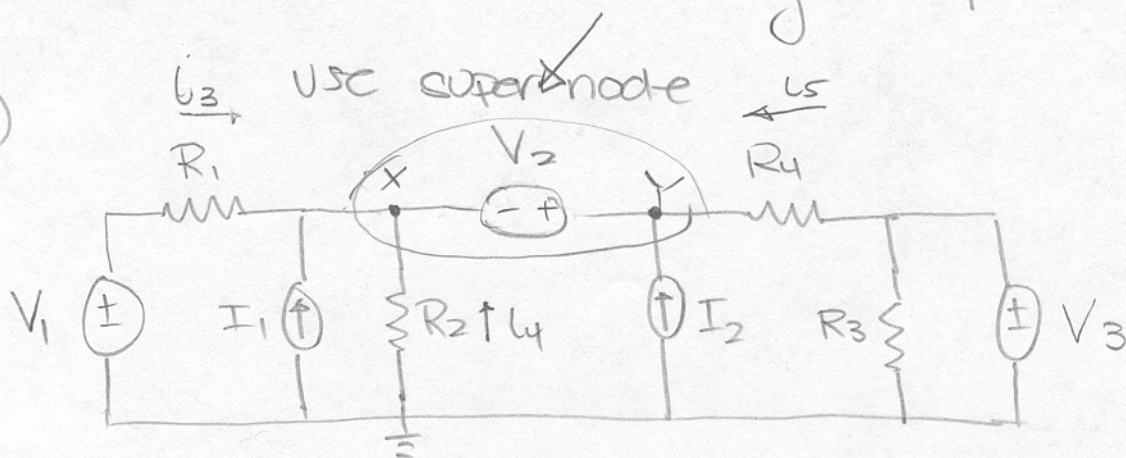 i₃ USE supernode i₅
R₁ V₂ R₄
X - + Y
V₁ ± I₁ R₂ i₄ I₂ R₃ ± V₃